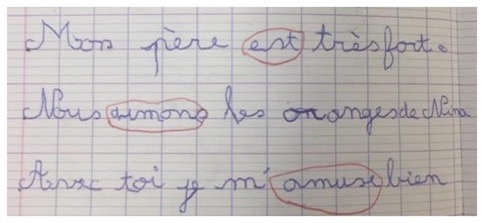 Mon père est très fort.
Nous aimons les oranges de Nina
Avec toi je m'amuse bien